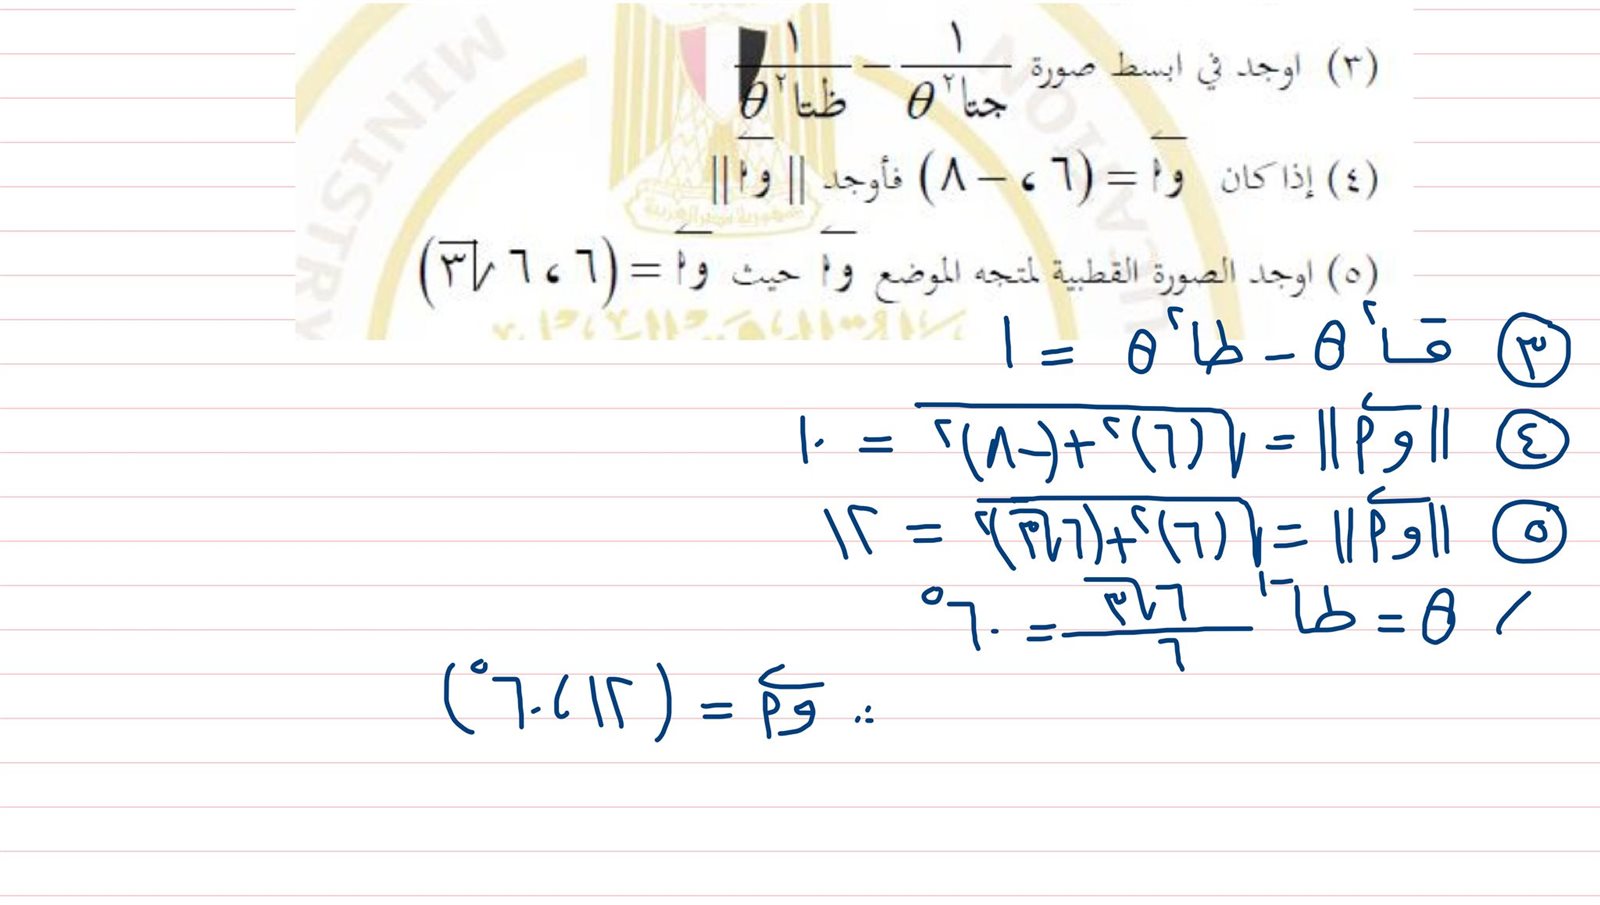 (٣) اوجد في ابسط صورة ١/جتا٢θ − ١/ظتا٢θ
(٤) إذا كان وأ = (٦ ، −٨) فأوجد ||وأ||
(٥) اوجد الصورة القطبية لمتجه الموضع وأ حيث وأ = (٦ ، ٦√٣)
MINISTRY
ATION
جمهورية مصر العربية
٣ قا٢θ − طا٢θ = ١
٤ ||وم|| = √(٦)٢+(−٨)٢ = ١٠
٥ ||وم|| = √(٦)٢+(٦√٣)٢ = ١٢
، θ = طا−١ ٦√٣/٦ = ٦٠°
∴ وم = (١٢ ، ٦٠°)